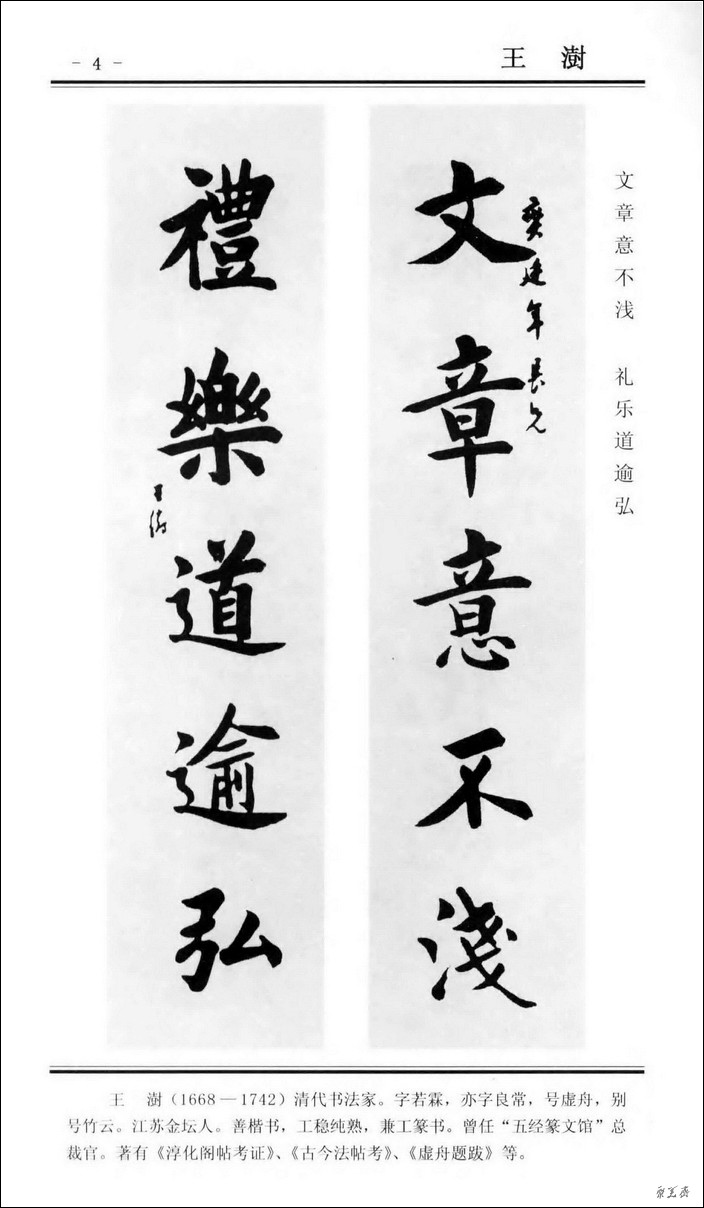 - 4 -
王 澍
文章意不浅 礼乐道逾弘
文章意不淺
年長兄
禮樂道逾弘
王澍
王 澍（1668—1742）清代书法家。字若霖，亦字良常，号虚舟，别
号竹云。江苏金坛人。善楷书，工稳纯熟，兼工篆书。曾任“五经篆文馆”总
裁官。著有《淳化阁帖考证》、《古今法帖考》、《虚舟题跋》等。